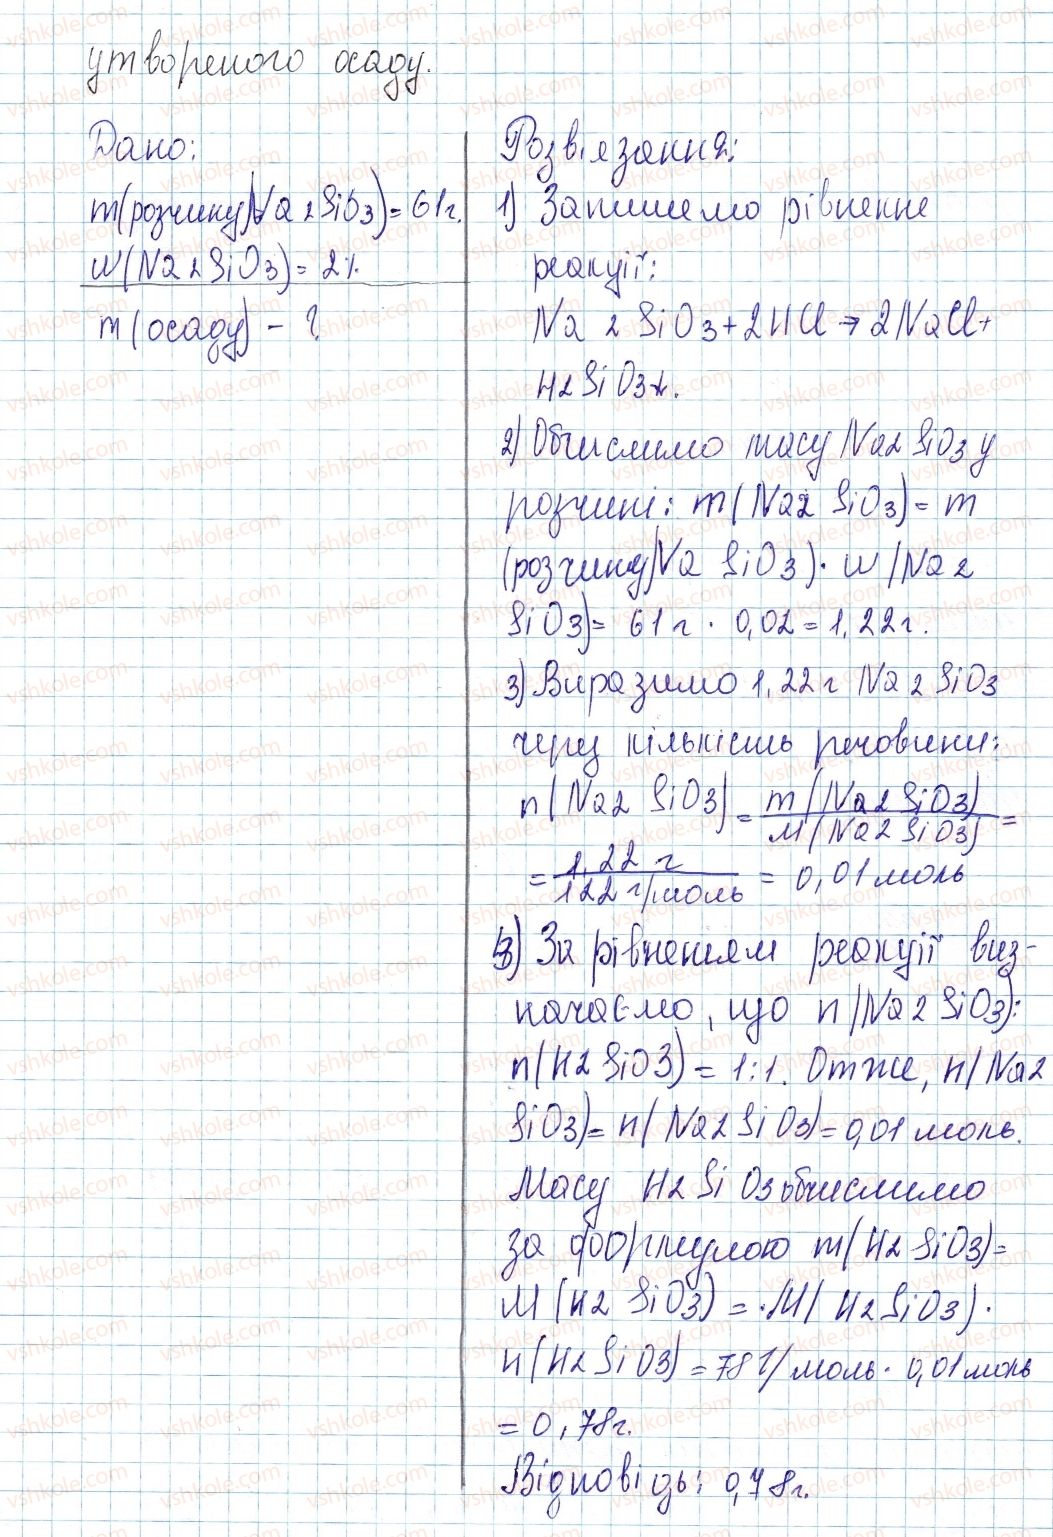 утвореного осаду.
Дано:
m(розчинуNa2SiO3)=61г.
w(Na2SiO3)=2%.
m(осаду) - ?
Розв'язання:
1) Запишемо рівнення
реакції:
Na 2 SiO3+2HCl→2NaCl+
H2SiO3↓.
2) Обчислимо масу Na2SiO3 у
розчині: m(Na2 SiO3)= m
(розчинуNa SiO3)·w(Na2
SiO3)= 61г · 0,02=1,22г.
3) Виразимо 1,22г Na2SiO3
через кількість речовини:
n(Na2 SiO3)= m(Na2SiO3)/M(Na2SiO3) =
= 1,22 г/122 г/моль = 0,01моль
3) За рівненням реакції виз-
начаємо, що n(Na2SiO3):
n(H2SiO3)=1:1. Отже, n(Na2
SiO3)=n(Na2SiO3)=0,01 моль.
Масу H2SiO3 обчислимо
за формулою m(H2SiO3)=
M(H2 SiO3)=·M(H2SiO3)·
n(H2SiO3)=78 г/моль· 0,01моль
= 0,78г.
Відповідь: 0,78г.